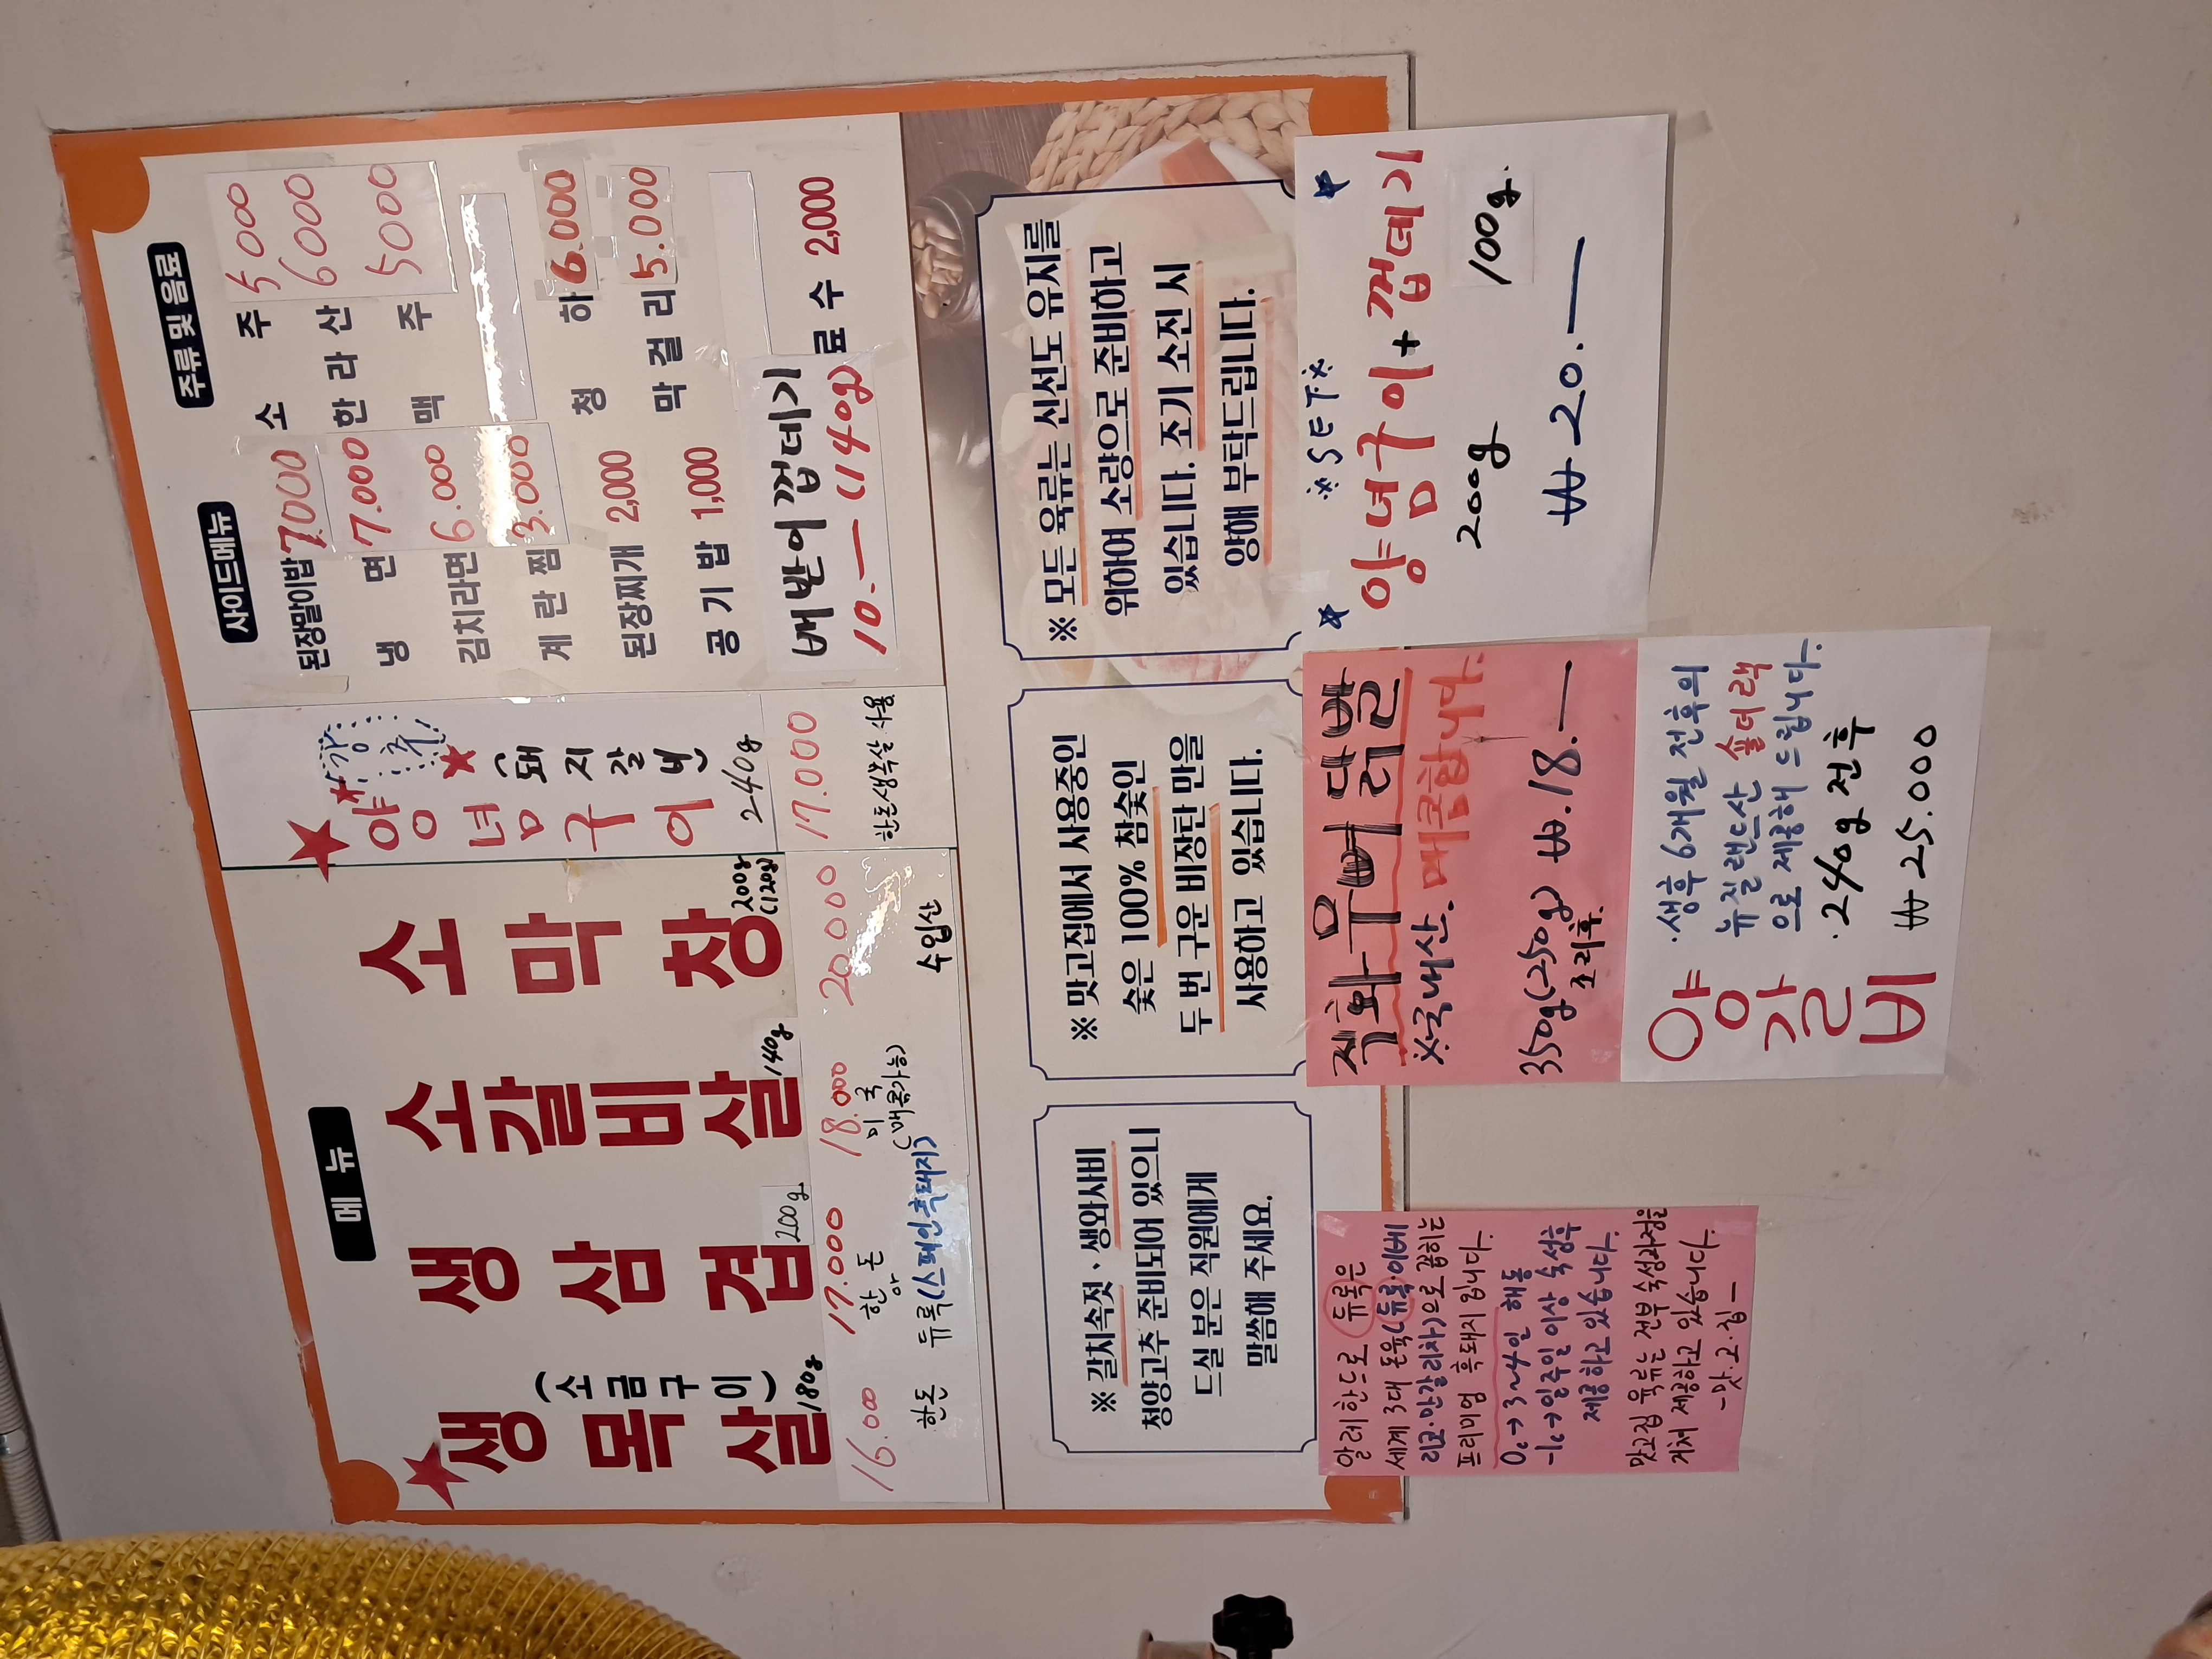 메 뉴
생목살
(소금구이)
180g
16.000
한돈
생삼겹
200g
17.000
한돈
듀록(스페인흑돼지)
소갈비살
140g
18.000
미국
(매콤가능)
소막창
200g
(120g)
20.000
수입산
강추!
양념구이
(돼지갈비)
240g
17.000
한돈생목살 사용
사이드메뉴
된장말이밥 7.000
냉 면 7.000
김치라면 6.000
계 란 찜 3.000
된장찌개 2,000
공 기 밥 1,000
벼반이껍데기
10.— (140g)
주류 및 음료
소 주 5000
한 라 산 6000
맥 주 5000
청 하 6.000
막 걸 리 5.000
료 수 2,000
※ 갈치속젓・생와사비
청양고추 준비되어 있으니
드실 분은 직원에게
말씀해 주세요.
※ 맛고집에서 사용중인
숯은 100% 참숯인
두 번 구운 비장탄 만을
사용하고 있습니다.
※ 모든 육류는 신선도 유지를
위하여 소량으로 준비하고
있습니다. 조기 소진 시
양해 부탁드립니다.
알레한드로 듀록은
세계 3대 돈육(듀록·이베
리코·만갈리차)으로 꼽히는
프리미엄 흑돼지 입니다.
0c→3~4인 해동
-1c→일주일 이상 숙성후
제공하고 있습니다.
맛고집 육류는 전부 숙성과정을
거쳐 제공하고 있습니다.
-맛.고.집-
직화무뼈닭발
※국내산. 매콤합니다.
350g(250g) ₩.18.—
조리후.
양갈비
·생후 6개월 전후의
뉴질랜드산 숄더랙
으로 제공해 드립니다.
·240g 전후
₩ 25.000
※SET※
양념구이+껍데기
200g 100g.
₩20.—